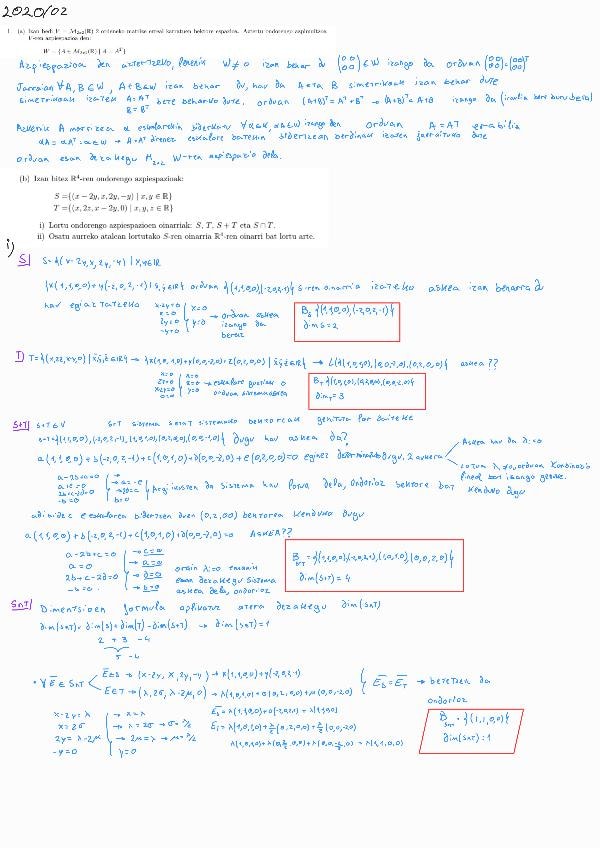 2020/02
1. (a) Izan bedi V = M₂ₓ₂(ℝ) 2 ordeneko matrize erreal karratuen bektore espazioa. Aztertu ondorengo azpimultzoa
V-ren azpiespazioa den:
W = {A ∈ M₂ₓ₂(ℝ) | A = Aᵀ}
Azpiespazioa den aztertzeko, lehenik W≠∅ izan behar du (0 0 / 0 0) ∈ W izango da orduan (0 0 / 0 0) = (0 0 / 0 0)ᵀ
Jarraian ∀A, B ∈ W, A+B ∈ W izan behar du, hau da A eta B simetrikoak izan behar dute
simetrikoak izateko A=Aᵀ B=Bᵀ bete beharko dute. orduan (A+B)ᵀ = Aᵀ+Bᵀ → (A+B)ᵀ = A+B izango da
Azkenik A matrizea α eskalarrekin ∀α∈ℝ, αA∈W izango den orduan A=Aᵀ erabiliz
αA = αAᵀ → A=Aᵀ direnez eskalare batekin biderkatzean berdinak izaten jarraituko dute
orduan esan dezakegu M₂ₓ₂ W-ren azpiespazio dela.
(b) Izan bitez ℝ⁴-ren ondorengo azpiespazioak:
S = {(x − 2y, x, 2y, −y) | x, y ∈ ℝ}
T = {(x, 2z, x − 2y, 0) | x, y, z ∈ ℝ}
i) Lortu ondorengo azpiespazioen oinarriak: S, T, S + T eta S ∩ T.
ii) Osatu aurreko atalean lortutako S-ren oinarria ℝ⁴-ren oinarri bat lortu arte.
i)
S| S={(x-2y,x,2y,-y) | x,y∈ℝ}
{x(1,1,0,0)+y(-2,0,2,-1) | x,y∈ℝ} orduan {(1,1,0,0),(-2,0,2,-1)} S-ren oinarria izateko askea izan beharra du
hau egiaztatzeko
x-2y=0
x=0
2y=0
-y=0
x=0
y=0
→ orduan askea izango da beraz
B_S {(1,1,0,0),(-2,0,2,-1)}
dim S = 2
T| T={(x,2z,x-2y,0) | x,y,z∈ℝ} → {x(1,0,1,0)+y(0,0,-2,0)+z(0,2,0,0) | x,y,z∈ℝ} → L{(1,0,1,0),(0,0,-2,0),(0,2,0,0)} askea ??
x=0
2z=0
x-2y=0
0=0
x=0
z=0
y=0
→ eskalare guztiak 0 orduan sistema askea
B_T {(1,0,1,0),(0,2,0,0),(0,0,-2,0)}
dim_T = 3
S+T| S+T∈V S+T sistema S eta T sistemako bektoreak gehituta lor daiteke
S+T={(1,1,0,0),(-2,0,2,-1),(1,0,1,0),(0,2,0,0),(0,0,-2,0)} dugu hau askea da?
a(1,1,0,0)+b(-2,0,2,-1)+c(1,0,1,0)+d(0,0,-2,0)+e(0,2,0,0)=0 eginez
Askea hau da λ=0
a-2b+c=0
-b=0
b=0
sistema hau lotua dela, ondorioz bektore bat kenduko dugu
e eskalarea biderkatzen duen (0,2,0,0) bektorea kenduko dugu
a(1,1,0,0)+b(-2,0,2,-1)+c(1,0,1,0)+d(0,0,-2,0)=0 ASKEA??
a-2b+c=0 → c=0
a=0 → a=0
2b+c-2d=0 → d=0
-b=0 → b=0
orain λ=0 esan dezakegu sistema askea dela, ondorioz
B_S+T = {(1,1,0,0),(-2,0,2,-1),(1,0,1,0),(0,0,2,0)}
dim(S+T) = 4
S∩T| Dimentsioen formula aplikatuz atera dezakegu dim(S∩T)
dim(S∩T) = dim(S)+dim(T)-dim(S+T) → dim(S∩T)=1
2 + 3 - 4
5 - 4
• ∀E∈S∩T
E∈S → (x-2y, x, 2y, -y) → x(1,1,0,0)+y(-2,0,2,-1)
E∈T → (λ, 2σ, λ-2μ, 0) → λ(1,0,1,0)+σ(0,2,0,0)+μ(0,0,-2,0)
E_S = E_T → beretzen da ondorioz
x-2y=λ → x=λ
x=2σ → λ=2σ → σ=λ/2
2y=λ-2μ → 2μ=λ → μ=λ/2
-y=0 y=0
E_S = λ(1,1,0,0)+0(-2,0,2,-1) = λ(1,1,0,0)
E_T = λ(1,0,1,0)+λ/2(0,2,0,0)+λ/2(0,0,-2,0)
= λ(1,1,0,0)
B_S∩T = {(1,1,0,0)}
dim(S∩T) = 1